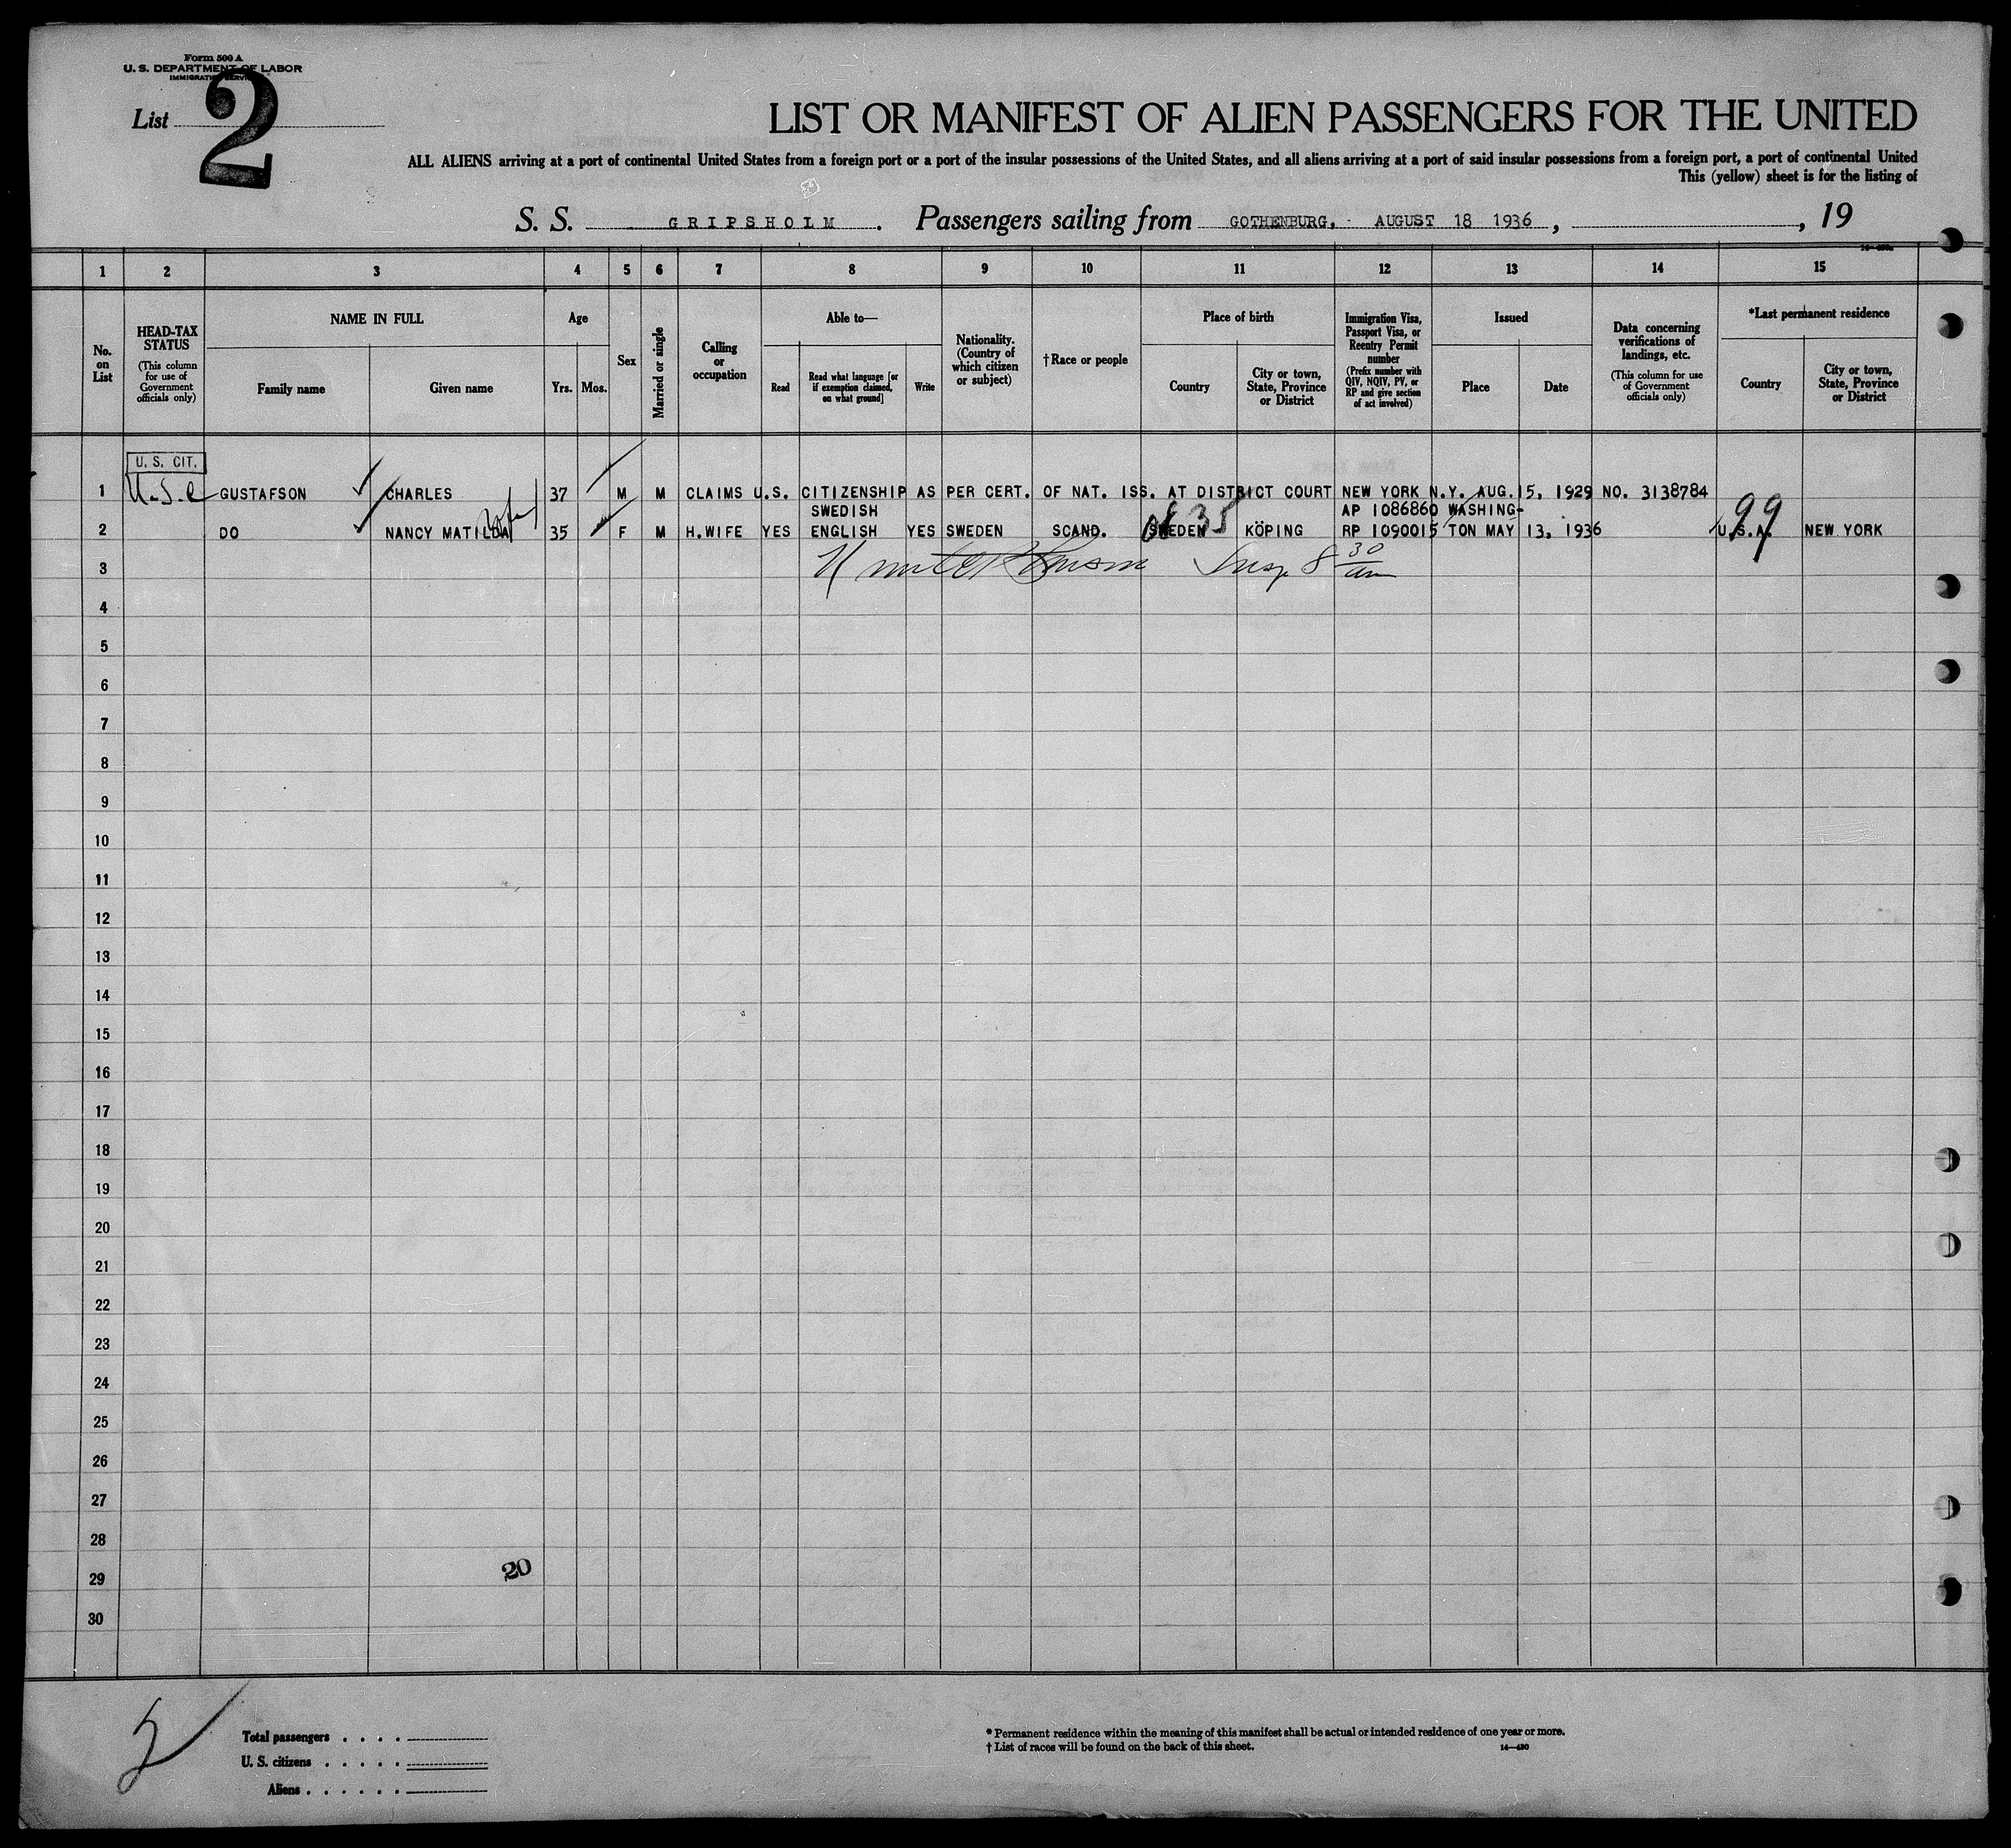 Form 500 A
U. S. DEPARTMENT OF LABOR
IMMIGRATION SERVICE
List 2
LIST OR MANIFEST OF ALIEN PASSENGERS FOR THE UNITED
ALL ALIENS arriving at a port of continental United States from a foreign port or a port of the insular possessions of the United States, and all aliens arriving at a port of said insular possessions from a foreign port, a port of continental United
This (yellow) sheet is for the listing of
S. S. GRIPSHOLM. Passengers sailing from GOTHENBURG, - AUGUST 18 1936, , 19
1 2 3 4 5 6 7 8 9 10 11 12 13 14 15
No. on List
HEAD-TAX STATUS
(This column for use of Government officials only)
NAME IN FULL
Family name
Given name
Age
Yrs.
Mos.
Sex
Married or single
Calling or occupation
Able to—
Read
Read what language [or if exemption claimed, on what ground]
Write
Nationality. (Country of which citizen or subject)
† Race or people
Place of birth
Country
City or town, State, Province or District
Immigration Visa, Passport Visa, or Reentry Permit number
(Prefix number with QIV, NQIV, PV, or RP and give section of act involved)
Issued
Place
Date
Data concerning verifications of landings, etc.
(This column for use of Government officials only)
*Last permanent residence
Country
City or town, State, Province or District
U. S. CIT.
1 U.S.C GUSTAFSON CHARLES 37 M M CLAIMS U.S. CITIZENSHIP AS PER CERT. OF NAT. ISS. AT DISTRICT COURT NEW YORK N.Y. AUG. 15, 1929 NO. 3138784
SWEDISH AP 1086860 WASHING-
2 DO NANCY MATILDA wife 35 F M H.WIFE YES ENGLISH YES SWEDEN SCAND. SWEDEN KÖPING RP 1090015 TON MAY 13, 1936 U.S.A. NEW YORK
35 99
3 Insp 8 30 am
4
5
6
7
8
9
10
11
12
13
14
15
16
17
18
19
20
21
22
23
24
25
26
27
28
29 20
30
2
Total passengers . . . .
U. S. citizens . . . . .
Aliens . . . . . .
* Permanent residence within the meaning of this manifest shall be actual or intended residence of one year or more.
† List of races will be found on the back of this sheet.
14—430